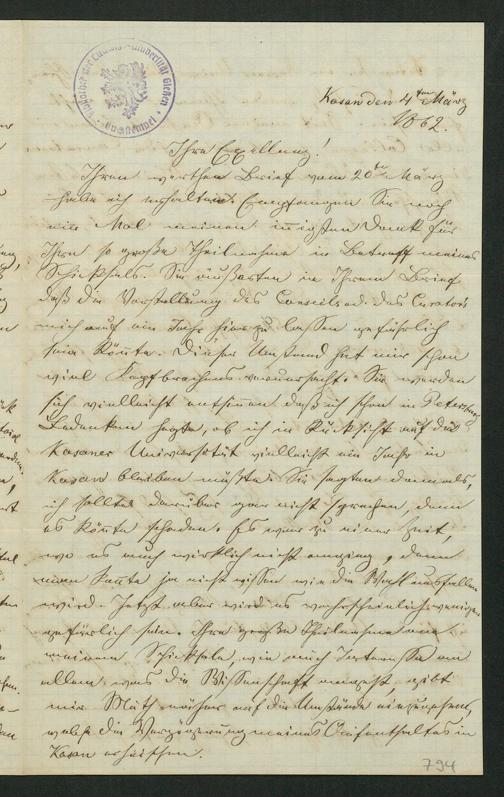 Kasan den 4ten März
1862.
Ihre Excellenz!
Ihren werthen Brief vom 20ten März
habe ich erhalten. Empfangen Sie noch
ein Mal meinen innigsten Dank für
Ihre so große Theilnahme in Betreff meines
Schicksals. Sie äußerten in Ihrem Brief
daß die Vorstellung des Conseils od. des Curators
mich auf ein Jahr hier zu lassen gefährlich
sein könnte. Dieser Umstand hat mir schon
viel Kopfbrechens verursacht. Sie werden
sich vielleicht entsinnen daß ich schon in Petersburg
Bedenken hegte, ob ich in Rücksicht auf die
Kasaner Universität vielleicht ein Jahr in
Kasan bleiben müßte. Sie sagten damals,
ich sollte darüber gar nicht sprechen, denn
es könnte schaden. Es war zu einer Zeit,
wo es auch wirklich nicht anging, denn
man konnte ja nicht wissen wie die Wahl ausfallen
wird. Jetzt aber wird es wahrscheinlich weniger
gefährlich sein. Ihre große Theilnahme an
meinem Schicksale, wie auch Interesse an
allem was die Wissenschaft angeht, gibt
mir Muth näher auf die Umstände einzugehen,
welche die Verzögerung meines Aufenthaltes in
Kasan erheischen.
794